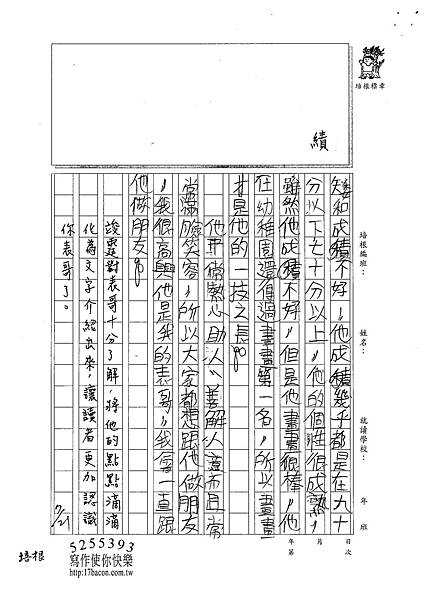 培根標章
績
培根編班：
姓名：
就讀學校：
年 班
矮和成績不好，他成績幾乎都是在九十
分以下七十分以上，他的個性很成熟，
雖然他成績不好，但是他畫畫很棒，他
在幼稚園還得過畫畫第一名，所以畫畫
才是他的一技之長。
他非常熱心助人、善解人意而且常
常滿臉笑容，所以大家都想跟他做朋友
，我很高興他是我的表哥，我會一直跟
他做朋友。
竣霆對表哥十分了解，將他的點點滴滴
化為文字介紹出來，讓讀者更加認識
你表哥了。
7/21
年 月 日
第 次
培根
5255393
寫作使你快樂
http://17bacon.com.tw